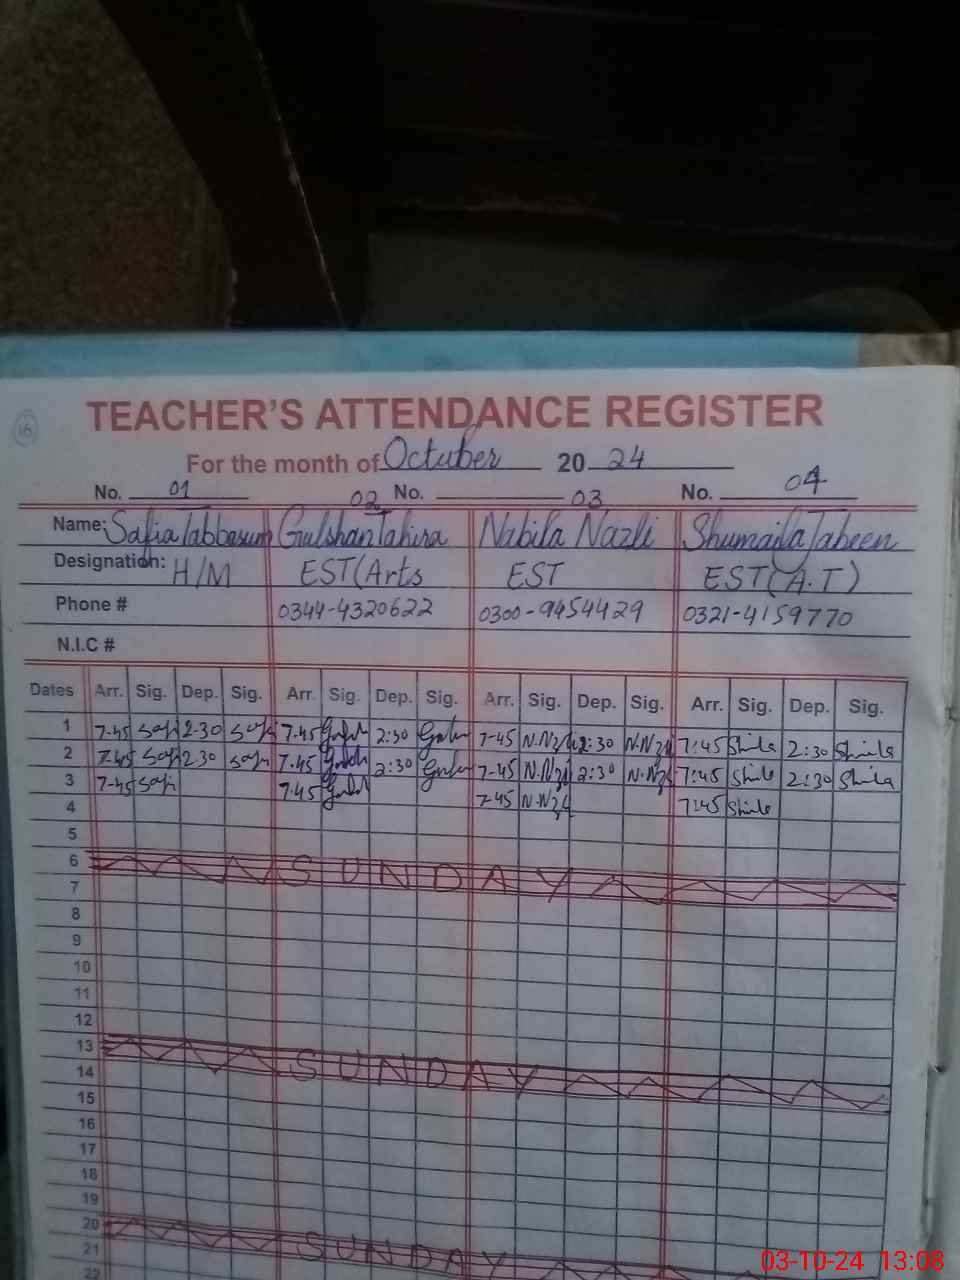 16
TEACHER'S ATTENDANCE REGISTER
For the month of Octuber 20 24
No. 01 02 No. 03 No. 04
Name: Safia Tabbasum Gulshan Tahira Nabila Nazli Shumaila Jabeen
Designation: H/M EST(Arts EST EST(A.T)
Phone # 0344-4320622 0300-9454429 0321-4159770
N.I.C #
Dates Arr. Sig. Dep. Sig. Arr. Sig. Dep. Sig. Arr. Sig. Dep. Sig. Arr. Sig. Dep. Sig.
1 7-45 Safi 2-30 Safi 7.45 2:30 7-45 2:30 7:45 2:30
2 7.45 Safi 2.30 Safi 7.45 2:30 7-45 2:30 7:45 2:30
3 7-45 Safi 7.45 7-45 7:45
4
5
6 SUNDAY
7
8
9
10
11
12
13 SUNDAY
14
15
16
17
18
19
20 SUNDAY
21
22
03-10-24 13:08